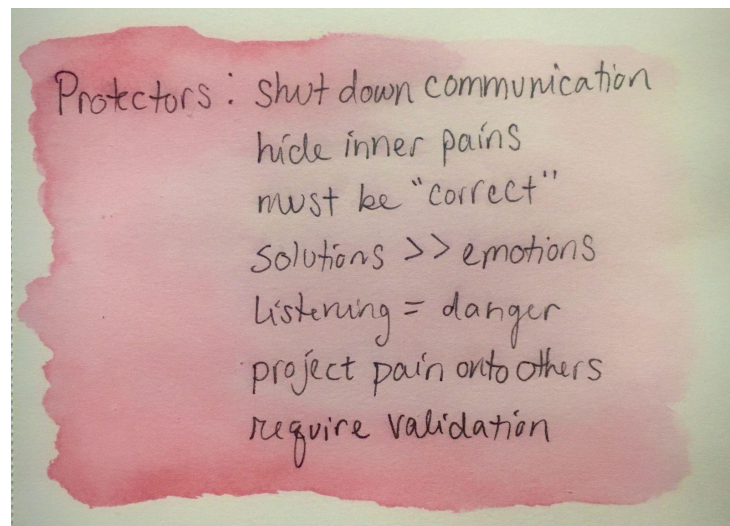 Protectors: shut down communication
hide inner pains
must be "correct"
solutions >> emotions
Listening = danger
project pain onto others
require validation